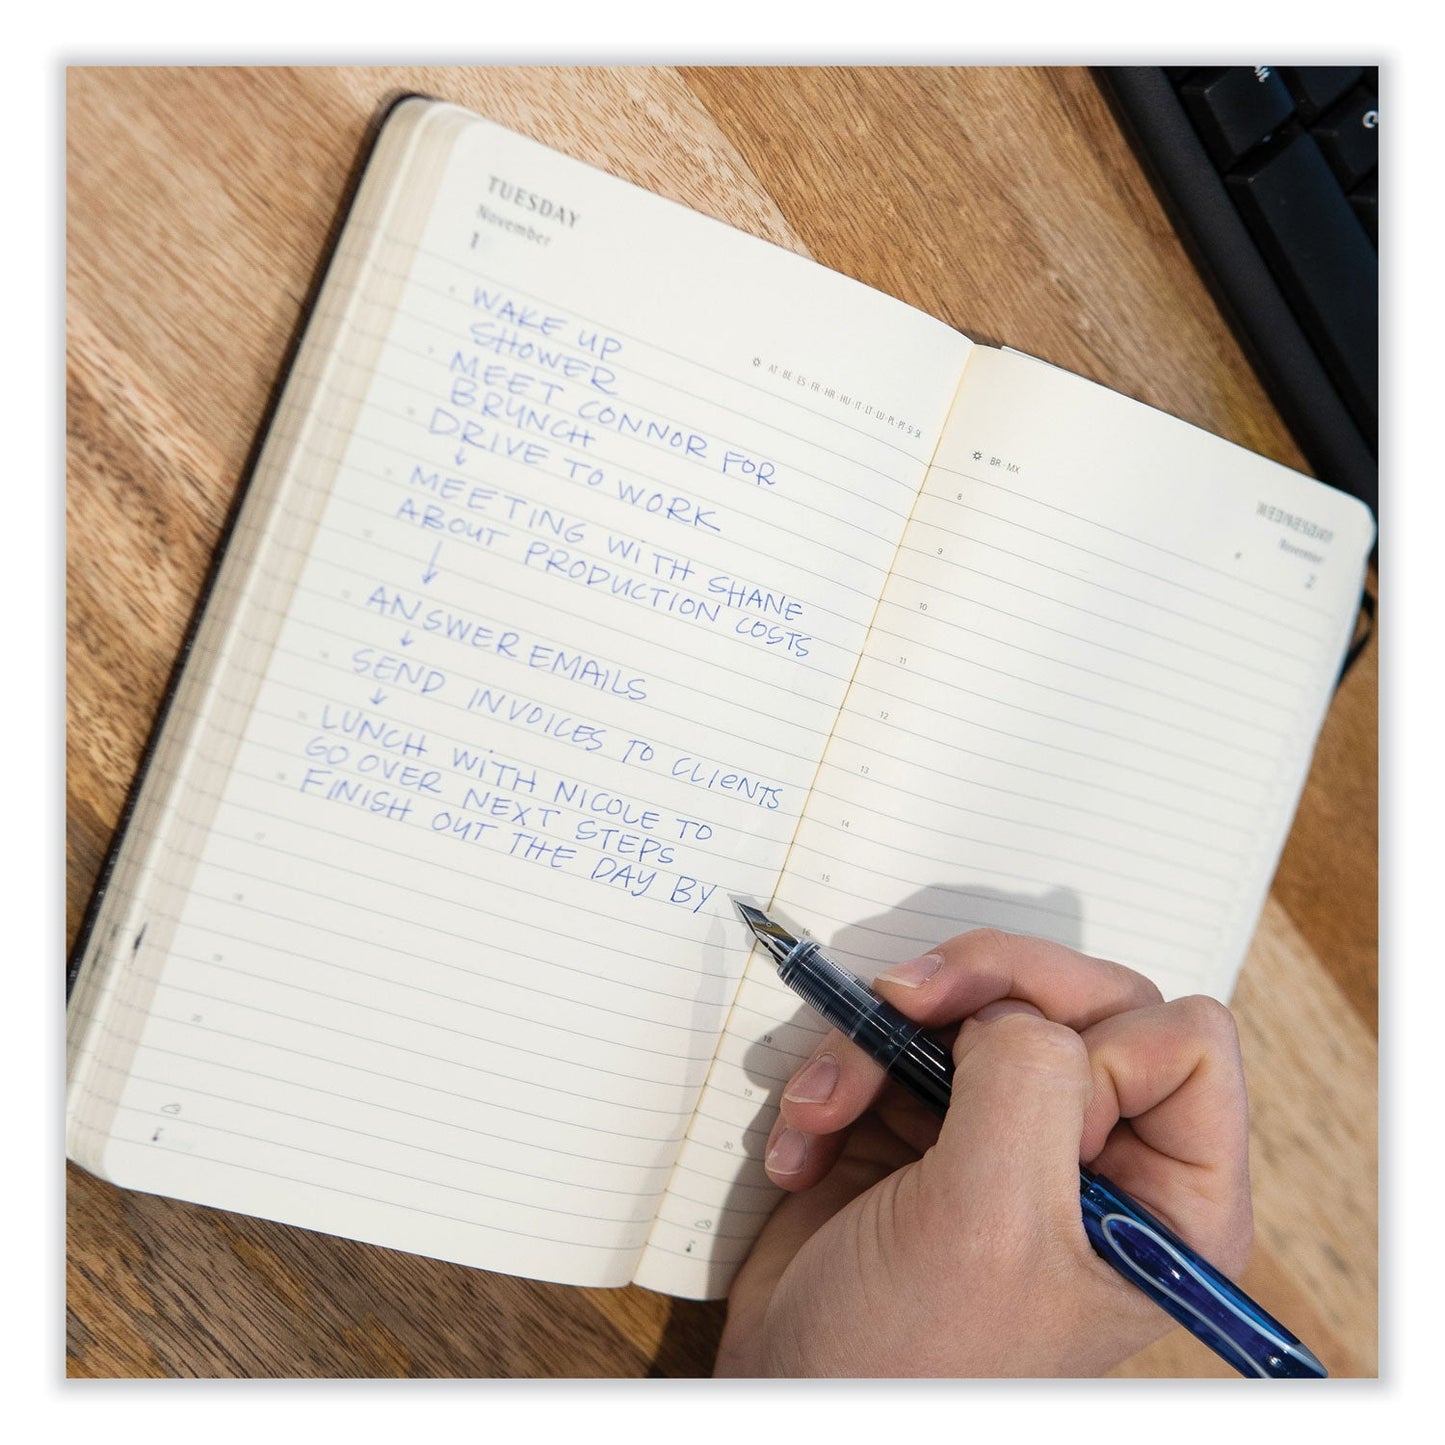 TUESDAY
November
1
WAKE UP
SHOWER
MEET CONNOR FOR
BRUNCH
DRIVE TO WORK
↓
MEETING WITH SHANE
ABOUT PRODUCTION COSTS
↓
ANSWER EMAILS
↓
SEND INVOICES TO CLIENTS
↓
LUNCH WITH NICOLE TO
GO OVER NEXT STEPS
FINISH OUT THE DAY BY
17
18
19
20
AT·BE·ES·FR·HR·HU·IT·LT·LU·PL·PT·SI·SK
WEDNESDAY
November
2
BR·MX
8
9
10
11
12
13
14
15
16
18
19
20